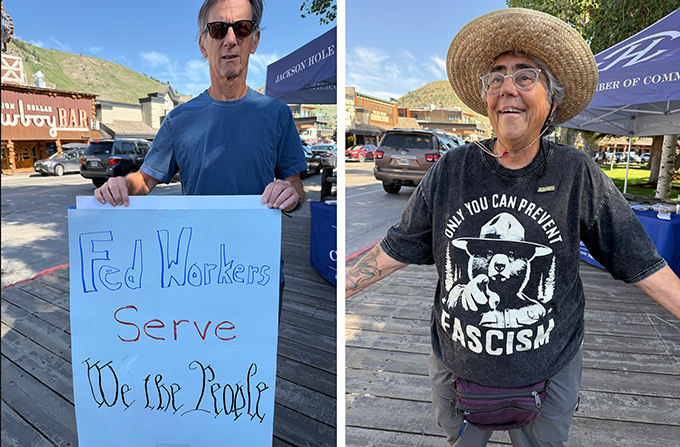 JACKSON HOLE
DOLLAR
Cowboy BAR
Fed Workers
Serve
We the People
BER OF COMM
ONLY YOU CAN PREVENT
FASCISM